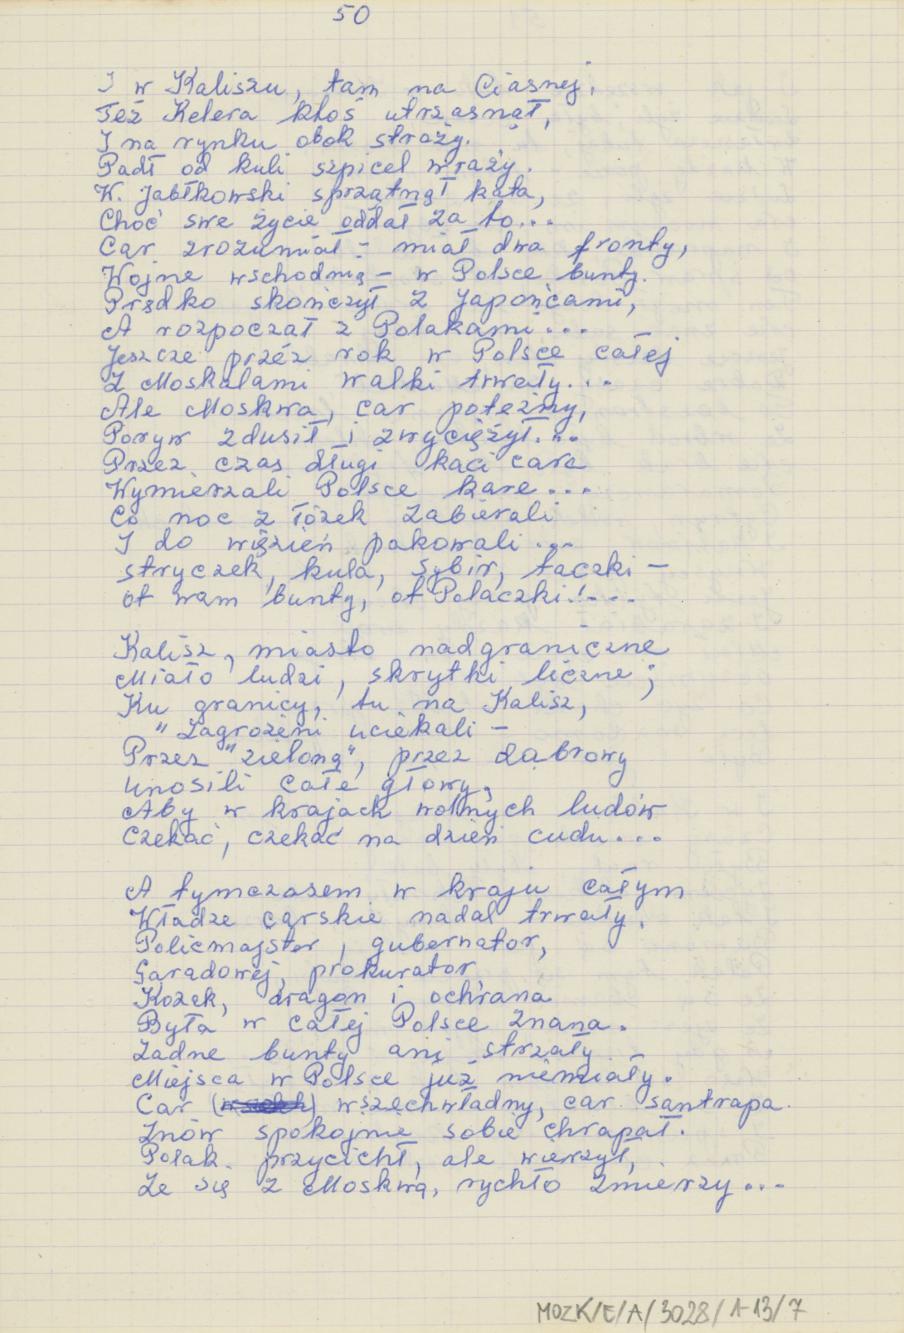 50
I w Kaliszu, tam na Ciasnej,
Też Kelera ktoś utrzasnął,
I na rynku obok straży.
Padł od kuli szpicel wraży.
W. Jabłkowski sprzątnął kata,
Choć swe życie oddał za to...
Car zrozumiał - miał dwa fronty,
Wojne wschodnią - w Polsce bunty.
Prędko skończył z Japońcami,
A rozpoczał z Polakami...
Jeszcze przez rok w Polsce całej
Z Moskalami walki trwały...
Ale Moskwa, car potężny,
Poryw zdusił i zwyciężył...
Przez czas długi kaci cara
Wymierzali Polsce kare...
Co noc z łózek zabierali
I do więzień pakowali...
stryczek, kula, Sybir, taczki -
ot wam bunty, ot Polaczki!...
Kalisz, miasto nadgraniczne
Miało ludzi, skrytki liczne;
Ku granicy, tu na Kalisz,
" Zagrożeni uciekali -
Przez "zieloną", przez dąbrowy
Unosili całe głowy,
Aby w krajach wolnych ludów
Czekać, czekać na dzień cudu...
A tymczasem w kraju całym
Władze carskie nadal trwały.
Policmajster, gubernator,
Garadowej, prokurator
Kozak, dragon i ochrana
Była w całej Polsce znana.
Żadne bunty ani strzały
Miejsca w Polsce już niemiały.
Car wszechwładny, car santrapa.
Znów spokojnie sobie chrapał.
Polak przycichł, ale wierzył,
Że się z Moskwą, rychło zmierzy...
MOZK/E/A/3028/1-13/7